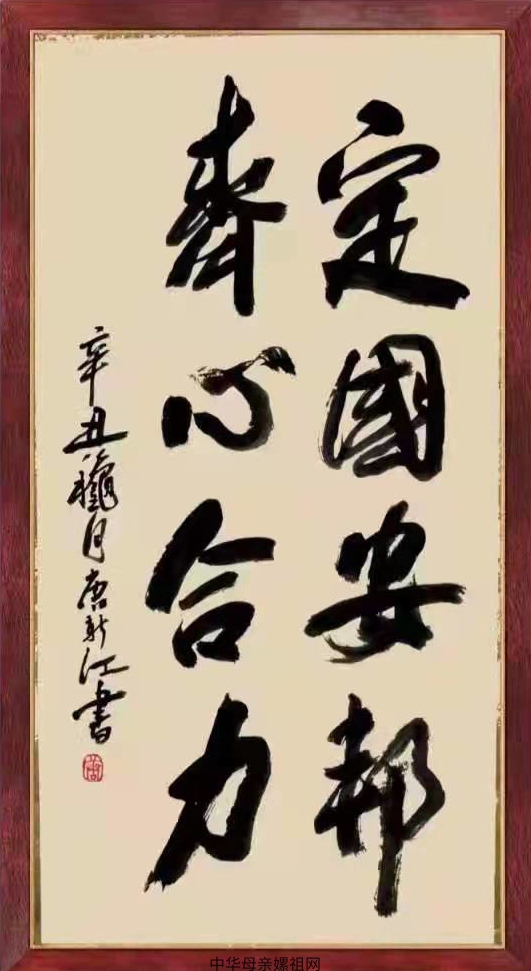 定國安邦
齊心合力
辛丑龝月唐新江書
中华母亲嫘祖网